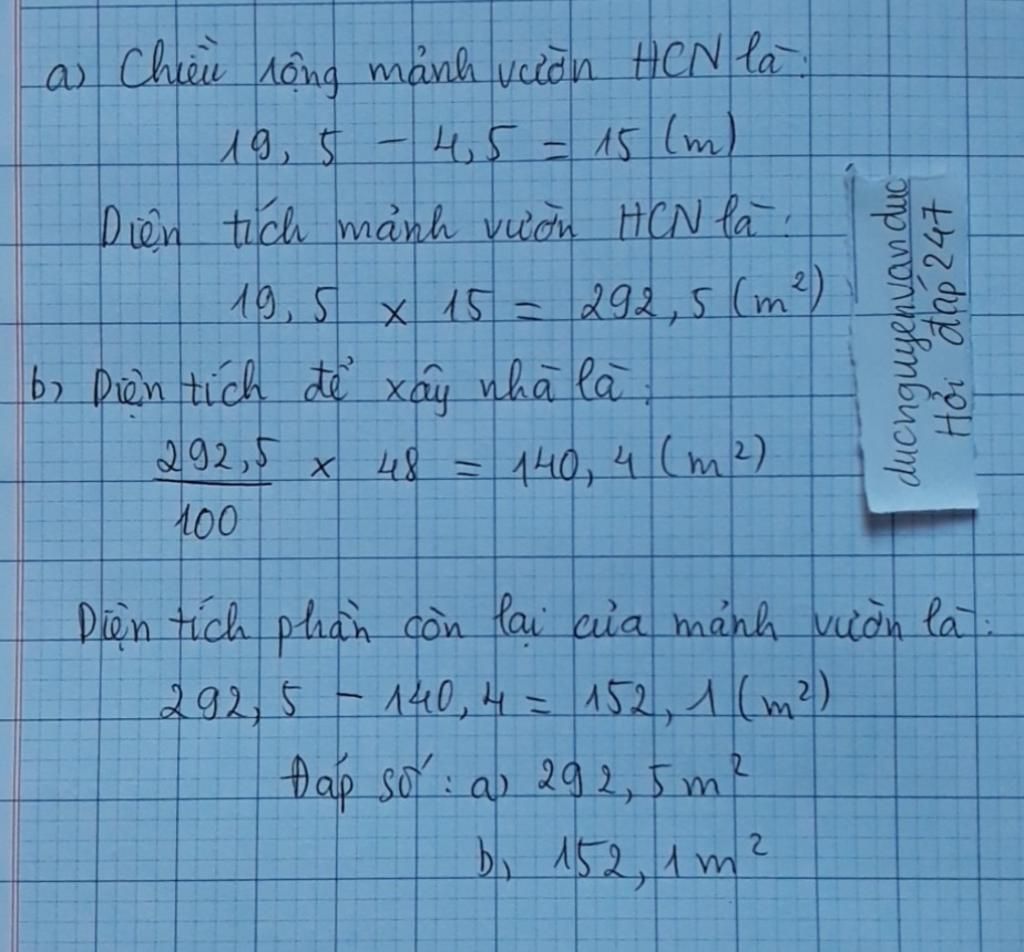 a) Chiều rộng mảnh vườn HCN là:
19,5 - 4,5 = 15 (m)
Diện tích mảnh vườn HCN là:
19,5 x 15 = 292,5 (m²)
b) Diện tích để xây nhà là:
292,5
100
x 48 = 140,4 (m²)
Diện tích phần còn lại của mảnh vườn là:
292,5 - 140,4 = 152,1 (m²)
Đáp số: a) 292,5 m²
b) 152,1 m²
ducnguyenvanduc
Hỏi đáp 247